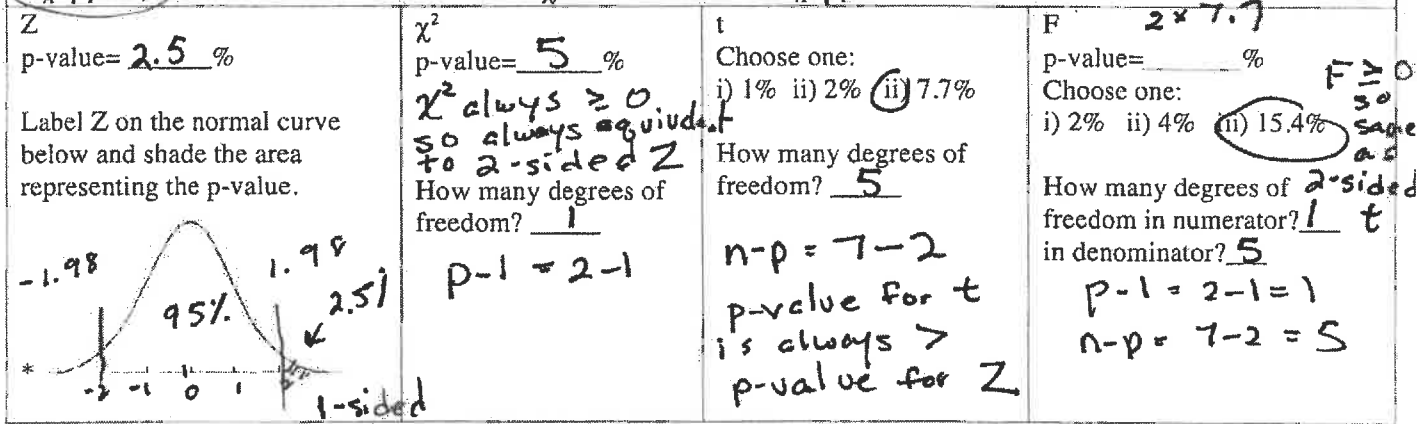 Z
p-value= 2.5 %
Label Z on the normal curve
below and shade the area
representing the p-value.
-1.98
1.98
95%
2.5%
*
-2 -1 0 1
1-sided
χ²
p-value= 5 %
χ² always ≥ 0
so always equivalent
to 2-sided Z
How many degrees of
freedom? 1
p-1 = 2-1
t
Choose one:
i) 1% ii) 2% ii) 7.7%
How many degrees of
freedom? 5
n-p = 7-2
p-value for t
is always >
p-value for Z
F
2 × 7.7
p-value=______%
Choose one:
i) 2% ii) 4% ii) 15.4%
F ≥ 0
so
same
as
2-sided
t
How many degrees of
freedom in numerator? 1
in denominator? 5
p-1 = 2-1 = 1
n-p = 7-2 = 5